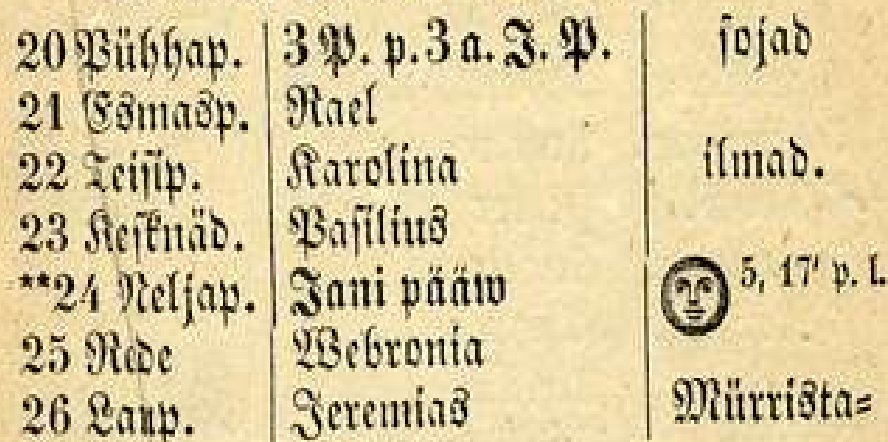 20 Pühhap. 3 P. p. 3 a. J. P. sojad
21 Esmasp. Rael
22 Teisip. Karolina ilmad.
23 Kesknäd. Pasilius
**24 Neljap. Jani pääw 5, 17' p. l.
25 Rede Webronia
26 Laup. Jeremias Mürrista=